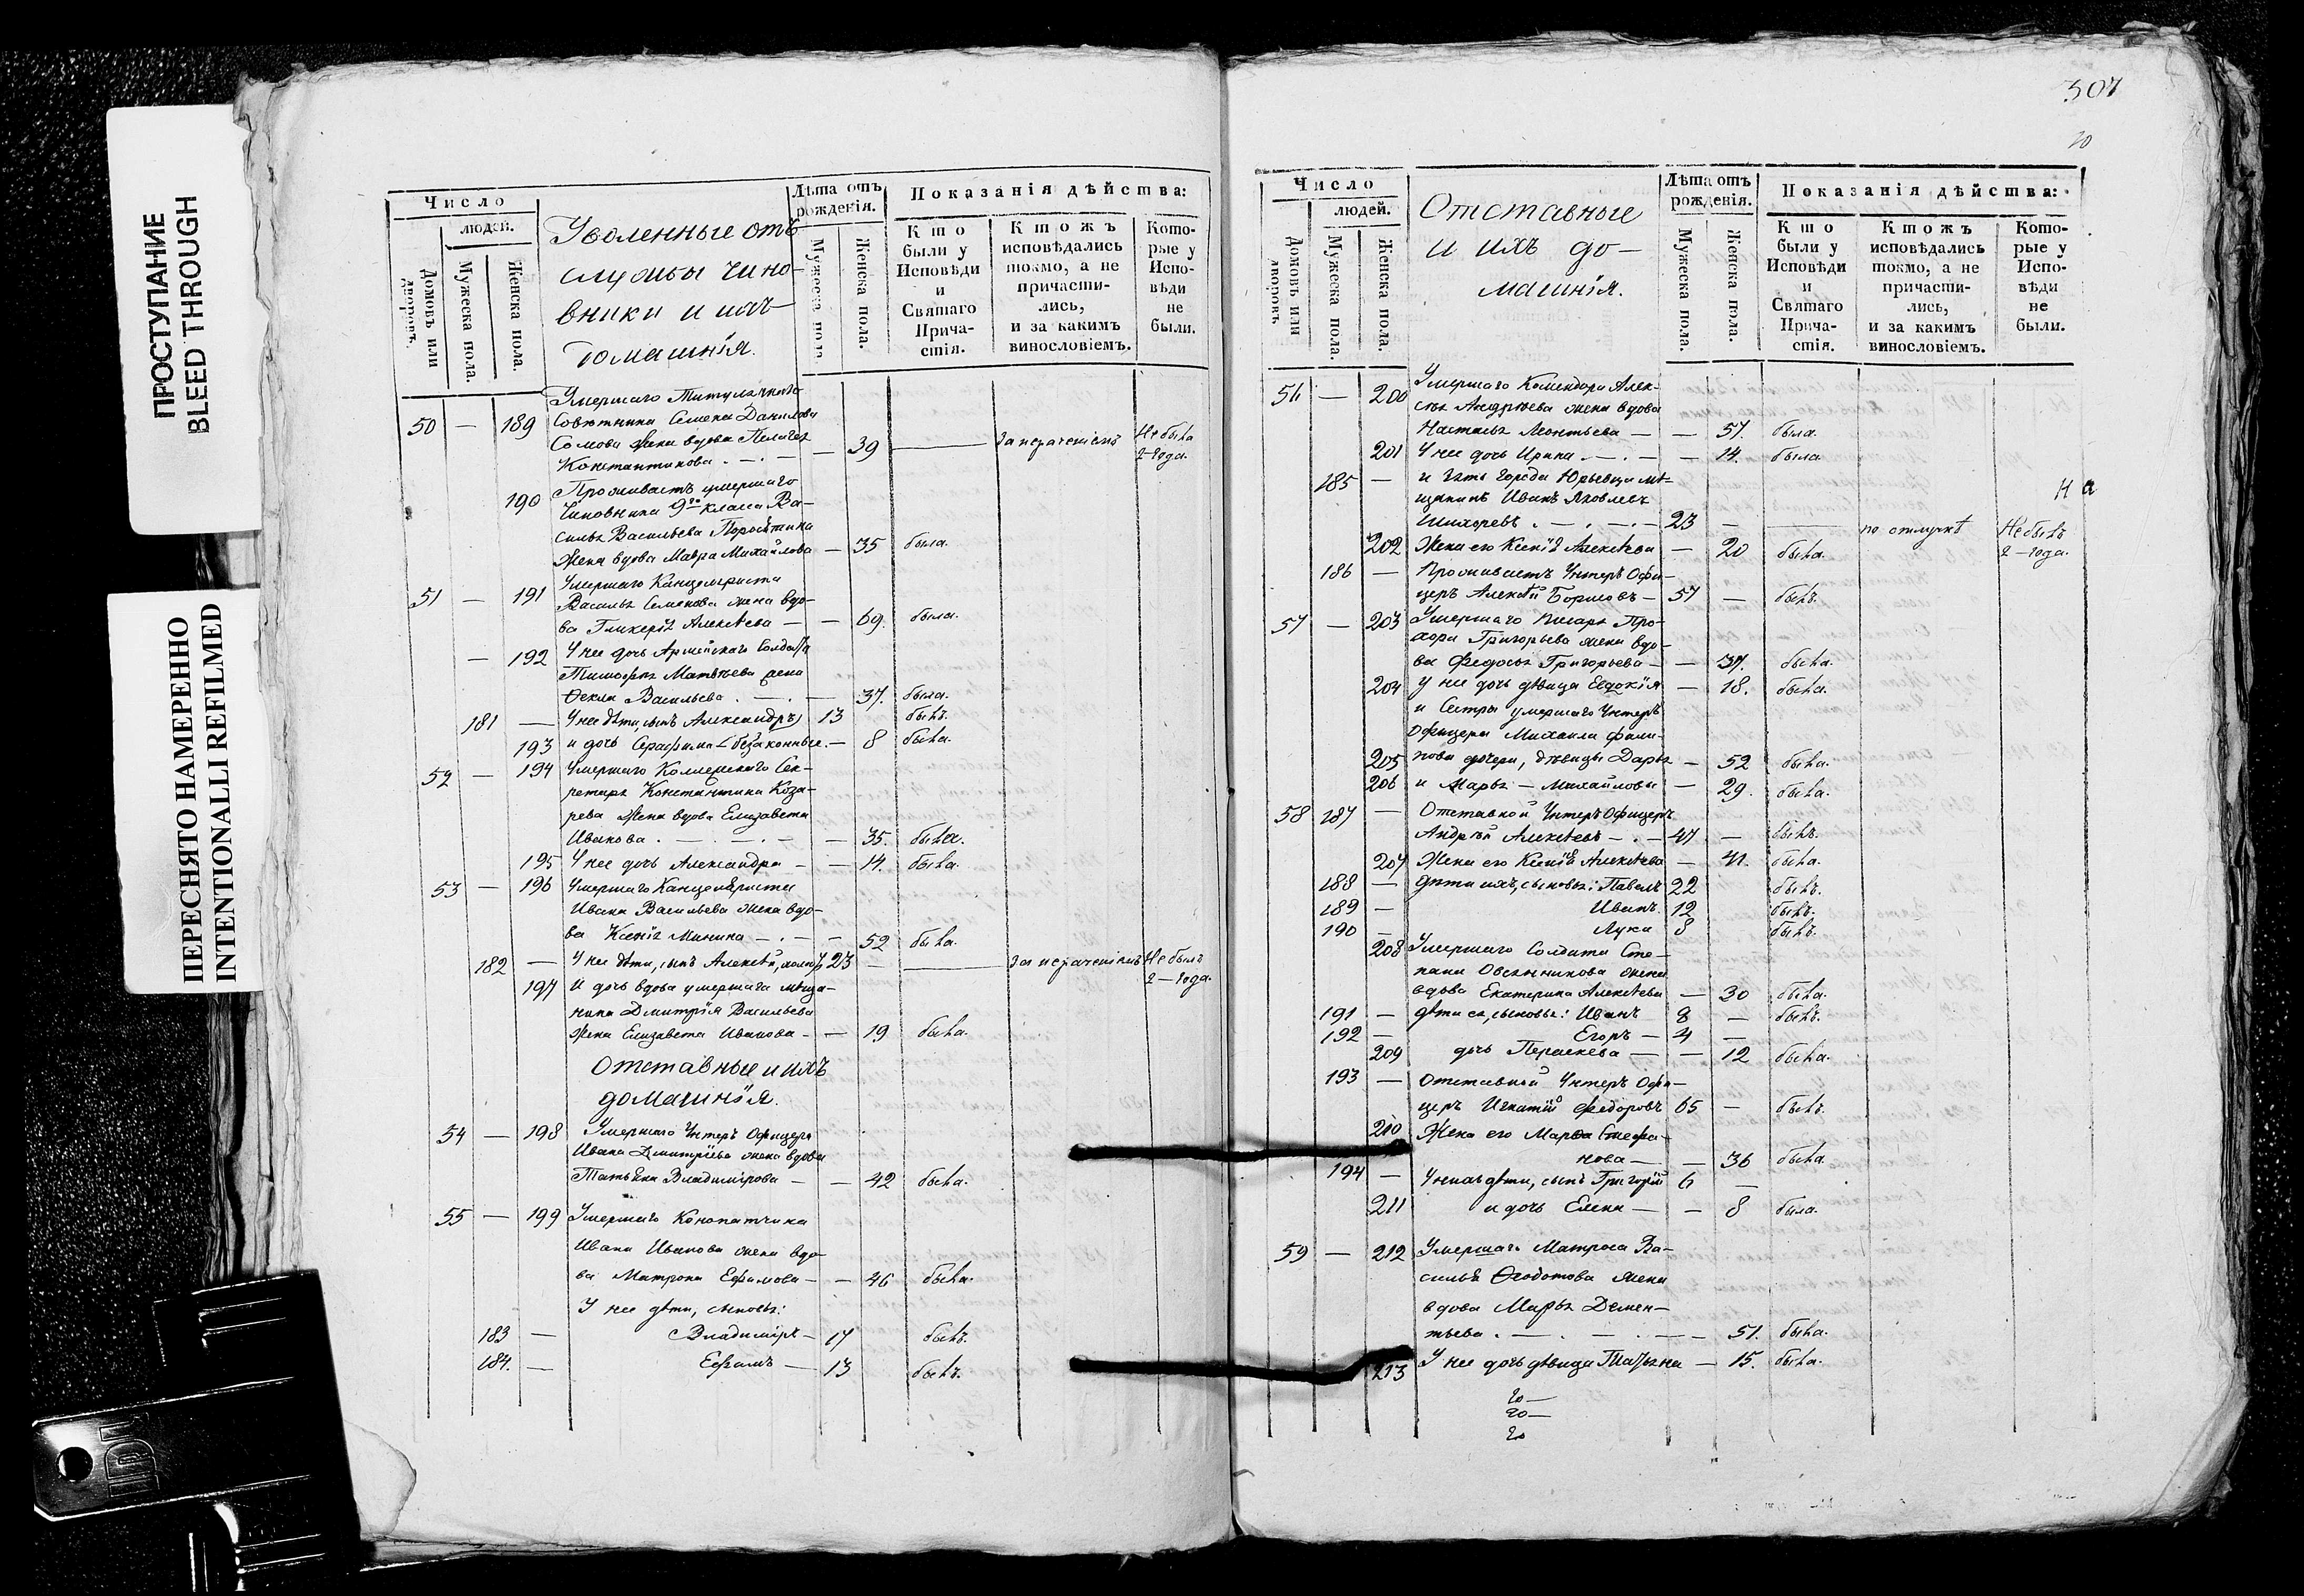 ПРОСТУПАНИЕ
BLEED THROUGH
ПЕРЕСНЯТО НАМЕРЕННО
INTENTIONALLI REFILMED
Число
людей.
Домовъ или дворовъ.
Мужеска пола.
Женска пола.
Уволенные отъ
службы чино-
вники и ихъ
домашнія.
Лѣта отъ
рожденія.
Мужеска пола
Женска пола.
Показанія дѣйства:
Кто
были у
Исповѣди
и
Святаго
Прича-
стія.
Ктожъ
исповѣдались
токмо, а не
причасти-
лись,
и за какимъ
винословіемъ.
Кото-
рые у
Испо-
вѣди
не
были.
Умершаго Титулярнаго
50 — 189 Совѣтника Семена Данилова
Сомова жена вдова Пелагея
Константинова . — . — — 39 — за нерачениемъ Не была
2 – года.
190 Проживаетъ умершаго
Чиновника 9го класса Ва-
силья Васильева
Жена вдова Мавра Михайлова — 35 была.
51 — 191 Умершаго Канцеляриста
Василья Семенова жена вдо-
ва Гликерія Алексѣева — — 69. была.
— 192 У нее дочь Армейскаго Солдата
Тимофея Матвѣева жена
Фекла Васильева . — . — 37. была.
181 — У нее дѣти, сынъ Александръ 13 былъ.
193 и дочь Серафима – безаконные. — 8 была.
52 — 194 Умершаго Коллежскаго Сек-
ретаря Константина Коза-
рева Жена вдова Елизавета
Иванова . — . — . — — 35. была.
195 У нее дочь Александра — — 14. была.
53 — 196 Умершаго Канцеляриста
Ивана Васильева Жена вдо-
ва Ксенія Минина — . — — 52 была.
182 — У нее дѣти, сынъ Алексѣй, 23 — — за нерачениемъ Не былъ
2 – года.
197 и дочь вдова умершаго мѣща-
нина Дмитрія Васильева
Жена Елизавета Иванова — — 19 была.
Отставные и ихъ
домашнія.
54 — 198 Умершаго Унтеръ Офицера
Ивана Дмитріева жена вдова
Татьяна Владимірова — — 42 была.
55 — 199 Умершаго Конопатчика
Ивана Иванова жена вдо-
ва Матрона Ефимова — — 46 была.
У нее дѣти, сыновья:
183 — Владиміръ — 17 былъ.
184. — Ефимъ — 13 былъ.
307
20
Число
людей.
Домовъ или дворовъ.
Мужеска пола.
Женска пола.
Отставные
и ихъ до-
машнія.
Лѣта отъ
рожденія.
Мужеска пола.
Женска пола.
Показанія дѣйства:
Кто
были у
Исповѣди
и
Святаго
Прича-
стія.
Ктожъ
исповѣдались
токмо, а не
причасти-
лись,
и за какимъ
винословіемъ.
Кото-
рые у
Испо-
вѣди
не
были.
56 — 200 Умершаго Комендора Алек-
сѣя Андрѣева жена вдова
Настасья Леонтьева — — 57. была.
201 У нее дочь Ирина — . — — 14. была
185 — и зять города Юрьевца мѣ-
щанинъ Иванъ Яковлевъ
Шихоревъ . — . — . — 23 — — по отлучкѣ Не былъ
2 – года.
На
202 Жена его Ксенія Алексѣева — 20 была.
186 — Проживаетъ Унтеръ Офи-
церъ Алексѣй Борисовъ — 57 — былъ.
57 — 203 Умершаго Писаря Про-
хора Григорьева жена вдо-
ва Федосья Григорьева — — 37. была.
204 у нее дочь дѣвица Евдокія — 18. была.
и Сестры умершаго Унтеръ
Офицера Михаила Фили-
205 пова дочери, дѣвицы Дарья — 52 была.
206 и Марья — Михайловы — 29. была.
58 187 — Отставной Унтеръ Офицеръ
Андрѣй Алексѣевъ — . — 47 — былъ.
207 Жена его Ксенія Алексѣева — 41. была.
188 — дѣти ихъ, сыновья: Павелъ 22 былъ.
189 — Иванъ. 12 былъ.
190 — Лука 8 былъ.
208 Умершаго Солдата Сте-
пана Овсянникова жена
вдова Екатерина Алексѣева — 30 была.
191 — дѣти ея, сыновья: Иванъ 8 — былъ.
192 — Егоръ — 4 —
209 дочь Перасковья — — 12 была.
193 — Отставной Унтеръ Офи-
церъ Игнатій Федоровъ 65 — былъ.
210 Жена его Марфа Стефа-
нова — — 36 была.
194 — У нихъ дѣти, сынъ Григорій 6 —
211 и дочь Елена — — 8 была.
59 — 212 Умершаго Матроса Ва-
силья Федотова жена
вдова Марья Демен-
тьева . — . — . — — 51. была.
213 У нее дочь дѣвица Татьяна — 15. была.